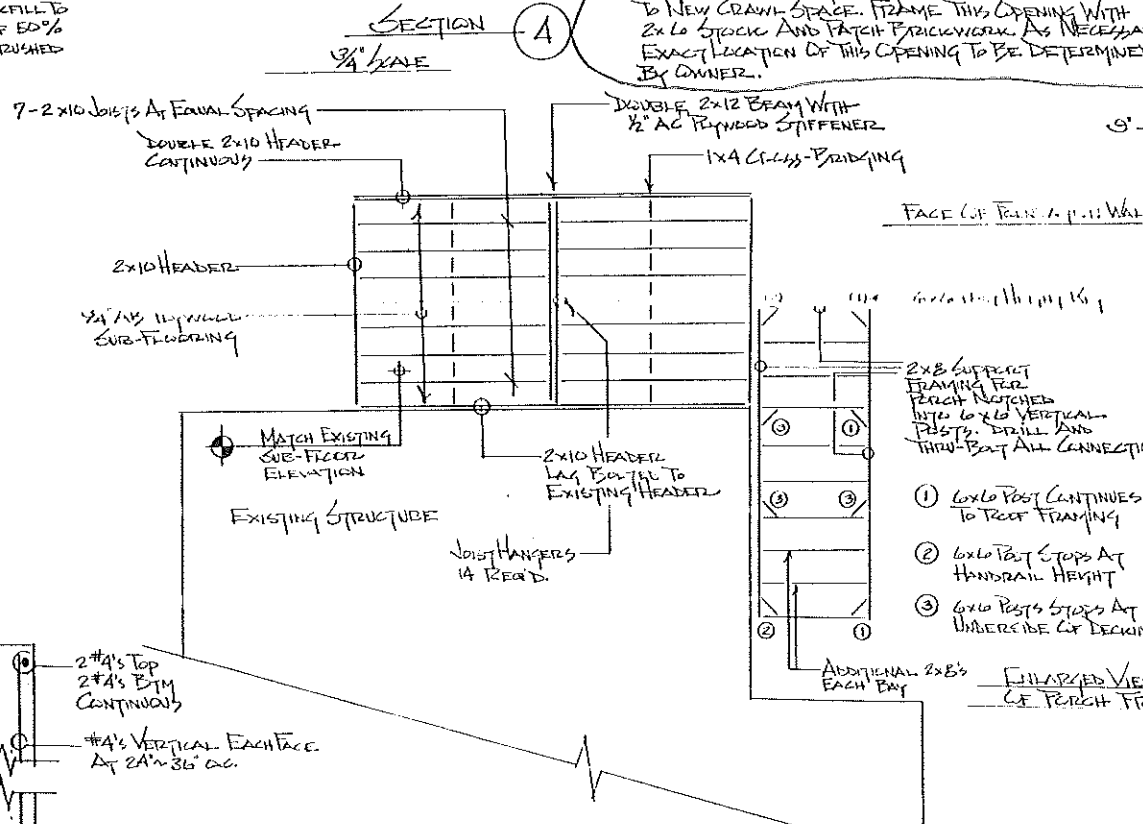 KFILL TO
F 50%
RUSHED
SECTION 4
3/4" SCALE
TO NEW CRAWL SPACE. FRAME THIS OPENING WITH
2x6 STOCK AND PATCH BRICKWORK AS NECESSA
EXACT LOCATION OF THIS OPENING TO BE DETERMINE
BY OWNER.
7-2x10 JOISTS AT EQUAL SPACING
DOUBLE 2x10 HEADER
CONTINUOUS
DOUBLE 2x12 BEAM WITH
1/2" AC PLYWOOD STIFFENER
1x4 CROSS-BRIDGING
9'-
FACE OF WAL
2x10 HEADER
3/4" PLYWOOD
SUB-FLOORING
2x8 SUPPORT
FRAMING FOR
PORCH NOTCHED
INTO 6x6 VERTICAL
POSTS. DRILL AND
THRU-BOLT ALL CONNECTIO
MATCH EXISTING
SUB-FLOOR
ELEVATION
2x10 HEADER
LAG BOLTED TO
EXISTING HEADER
EXISTING STRUCTURE
JOIST HANGERS
14 REQ'D.
3 1
3 3
2 1
1 6x6 POST CONTINUES
TO ROOF FRAMING
2 6x6 POST STOPS AT
HANDRAIL HEIGHT
3 6x6 POSTS STOPS AT
UNDERSIDE OF DECKIN
2 #4's TOP
2 #4's BTM
CONTINUOUS
ADDITIONAL 2x8's
EACH BAY
ENLARGED VIE
OF PORCH FR
#4's VERTICAL EACH FACE
AT 24"~36" O.C.